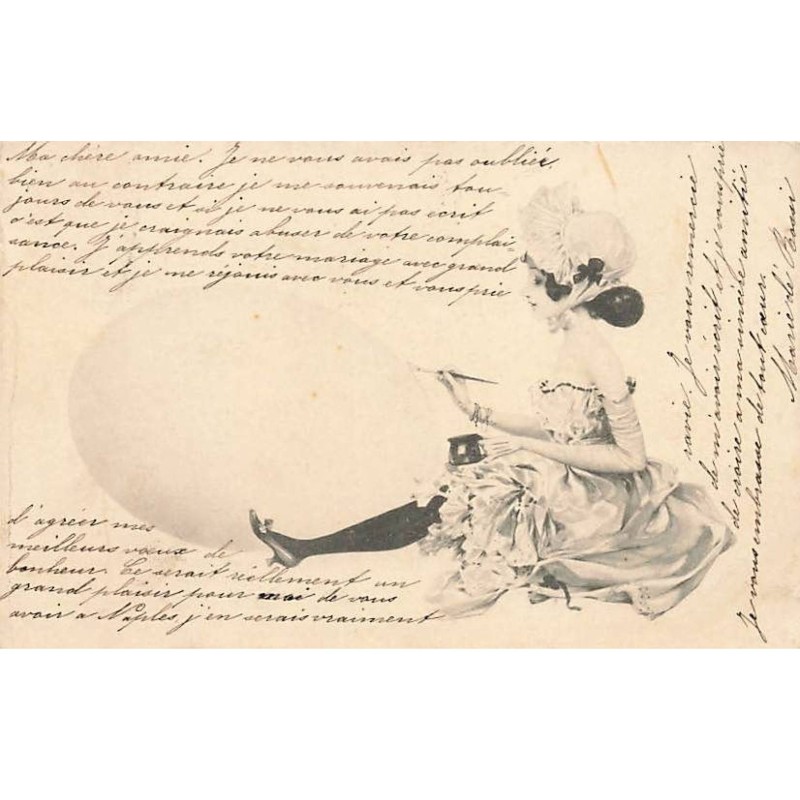 Ma chère amie. Je ne vous avais pas oubliée,
bien au contraire je me souvenais tou-
jours de vous et si je ne vous ai pas écrit
c'est que je craignais abuser de votre complai-
sance. J'apprends votre mariage avec grand
plaisir et je me réjouis avec vous et vous prie
d'agréer mes
meilleurs vœux de
bonheur. Ce serait réellement un
grand plaisir pour moi de vous
avoir a Naples, j'en serais vraiment
ravie. Je vous remercie
de m'avoir écrit et je vous prie
de croire a ma sincère amitié.
Je vous embrasse de tout cœur.
Marie de' Rossi